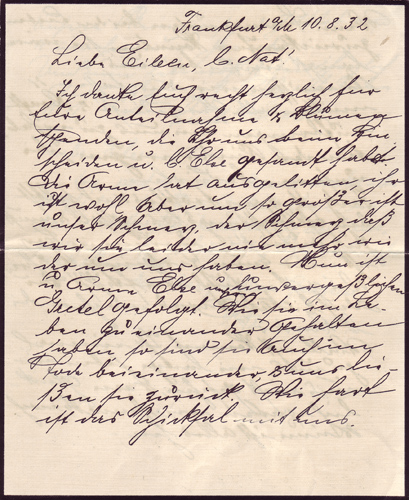 Frankfurt a/M 10.8.32
Liebe Eileen, l. Nat!
Ich danke Euch recht herzlich für
Eure Anteilnahme & Blumen
spenden, die Ihr uns beim Hin
scheiden u. l. Else gesamt habt.
die Arme hat ausgelitten, ihr
ist wohl Aber um so großer ist
unser Schmerz, der Schmerz daß
wir sie leider nie mehr wie
der um uns haben. Nun ist
u. Arme Else unvergeßlichen
Gretel gefolgt. Wie sie im Le
ben zu einander gehalten
haben so sind sie auch im
Tode beieinander, & uns lie
ßen sie zurück. Wie hart
ist das Schicksal mit uns.